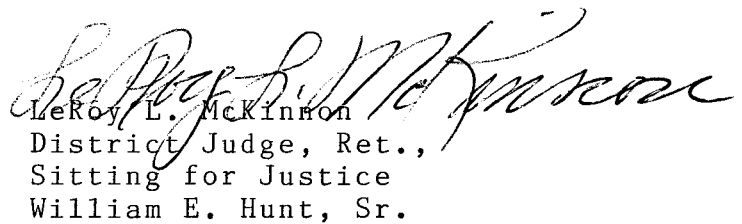 LeRoy L. McKinnon
LeRoy L. McKinnon
District Judge, Ret.,
Sitting for Justice
William E. Hunt, Sr.